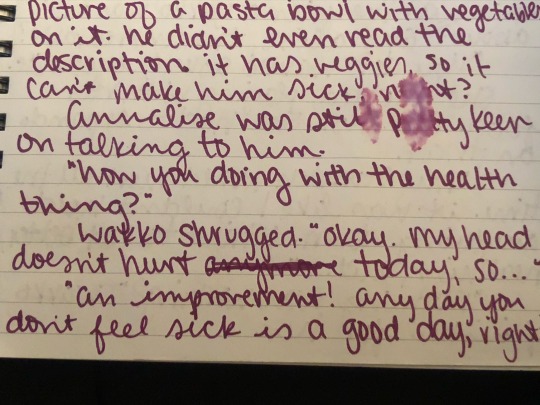 picture of a pasta bowl with vegetables
on it. he didn't even read the
description. it has veggies, so it
can't make him sick,
Annalise was still pretty keen
on talking to him.
"how you doing with the health
thing?"
Wakko shrugged. "okay. my head
doesn't hurt today, so..."
"an improvement! any day you
don't feel sick is a good day, right